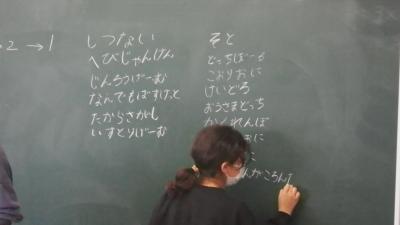 2 → 1
しつない
へびじゃんけん
じんろうげーむ
なんでもばすけっと
たからさがし
いすとりげーむ
そと
どっちぼーる
こおりおに
けいどろ
おうさまどっち
かくれんぼ
おに
に
んがころんだ